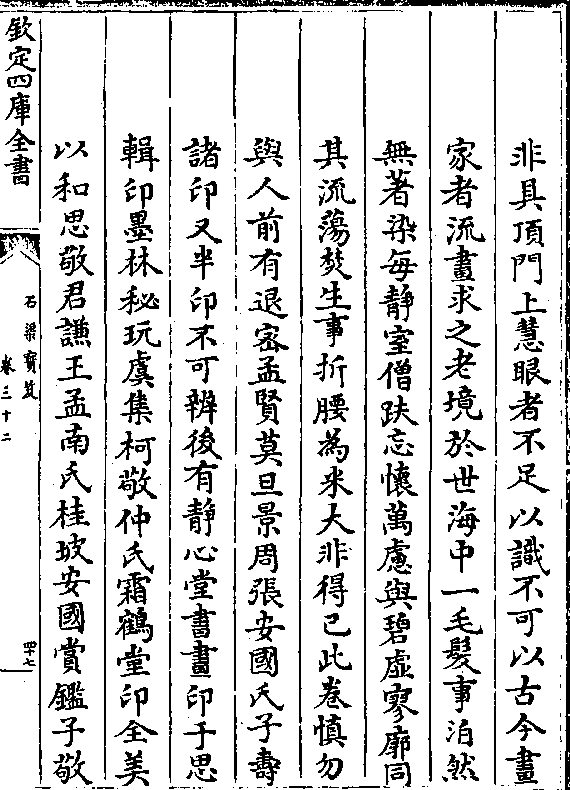 非具頂門上慧眼者不足以識不可以古今畫
家者流畫求之老境於世海中一毛髮事泊然
無著染每靜室僧趺忘懷萬慮與碧虛寥廓同
其流蕩焚生事折腰為米大非得已此卷慎勿
與人前有退密孟賢莫旦景周張安國氏子壽
諸印又半印不可辨後有靜心堂書畫印于思
輯印墨林秘玩虞集柯敬仲氏霜鶴堂印全美
以和思敬君謙王孟南氏桂坡安國賞鑑子敬
欽定四庫全書
石渠寶笈
卷三十二
四十七